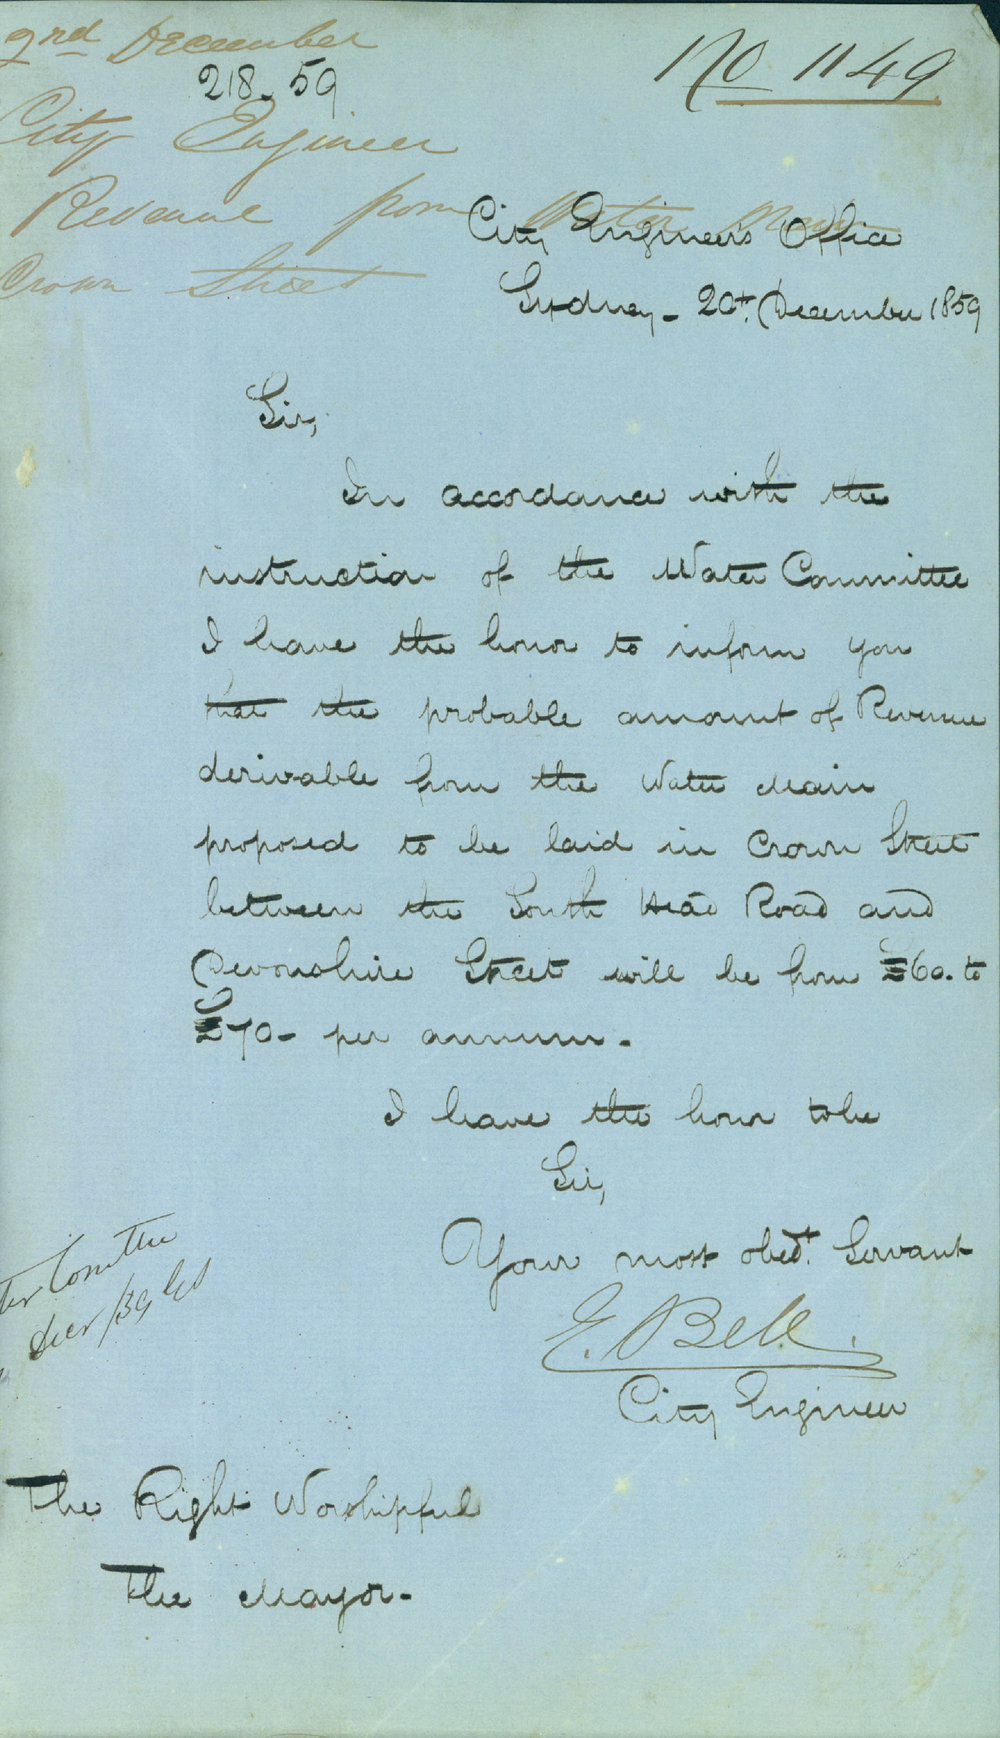 2nd December
218-59
No 1149
City Engineer
Revenue from Water Main
Crown Street
City Engineers Office
Sydney - 20th December 1859
Sir,
In accordance with the
instruction of the Water Committee
I have the honor to inform you
that the probable amount of Revenue
derivable from the Water Main
proposed to be laid in Crown Street
between the South Head Road and
Devonshire Street will be from £60. to
£70 - per annum.
I have the honor to be
Sir,
Your most obedt. Servant
E. Bell.
City Engineer
The Right Worshipful
The Mayor-